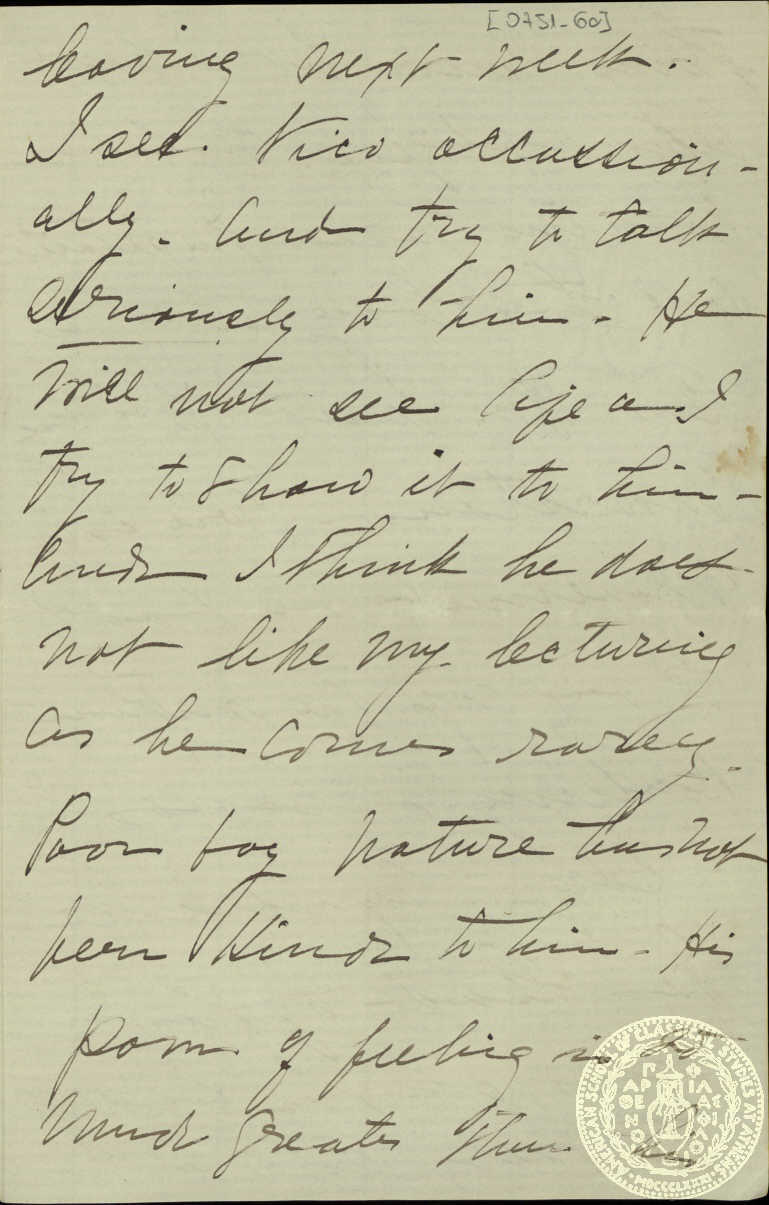 [0751-60]
leaving next week.
I see. Nico occassion-
ally. And try to talk
seriously to him - He
will not see life as I
try to show it to him -
And I think he does
not like my lecturing
as he comes rarely.
Poor boy nature has not
been kind to him - His
power of feeling is so
much greater than his
AMERICAN SCHOOL OF CLASSICAL STUDIES AT ATHENS
MDCCCLXXXI